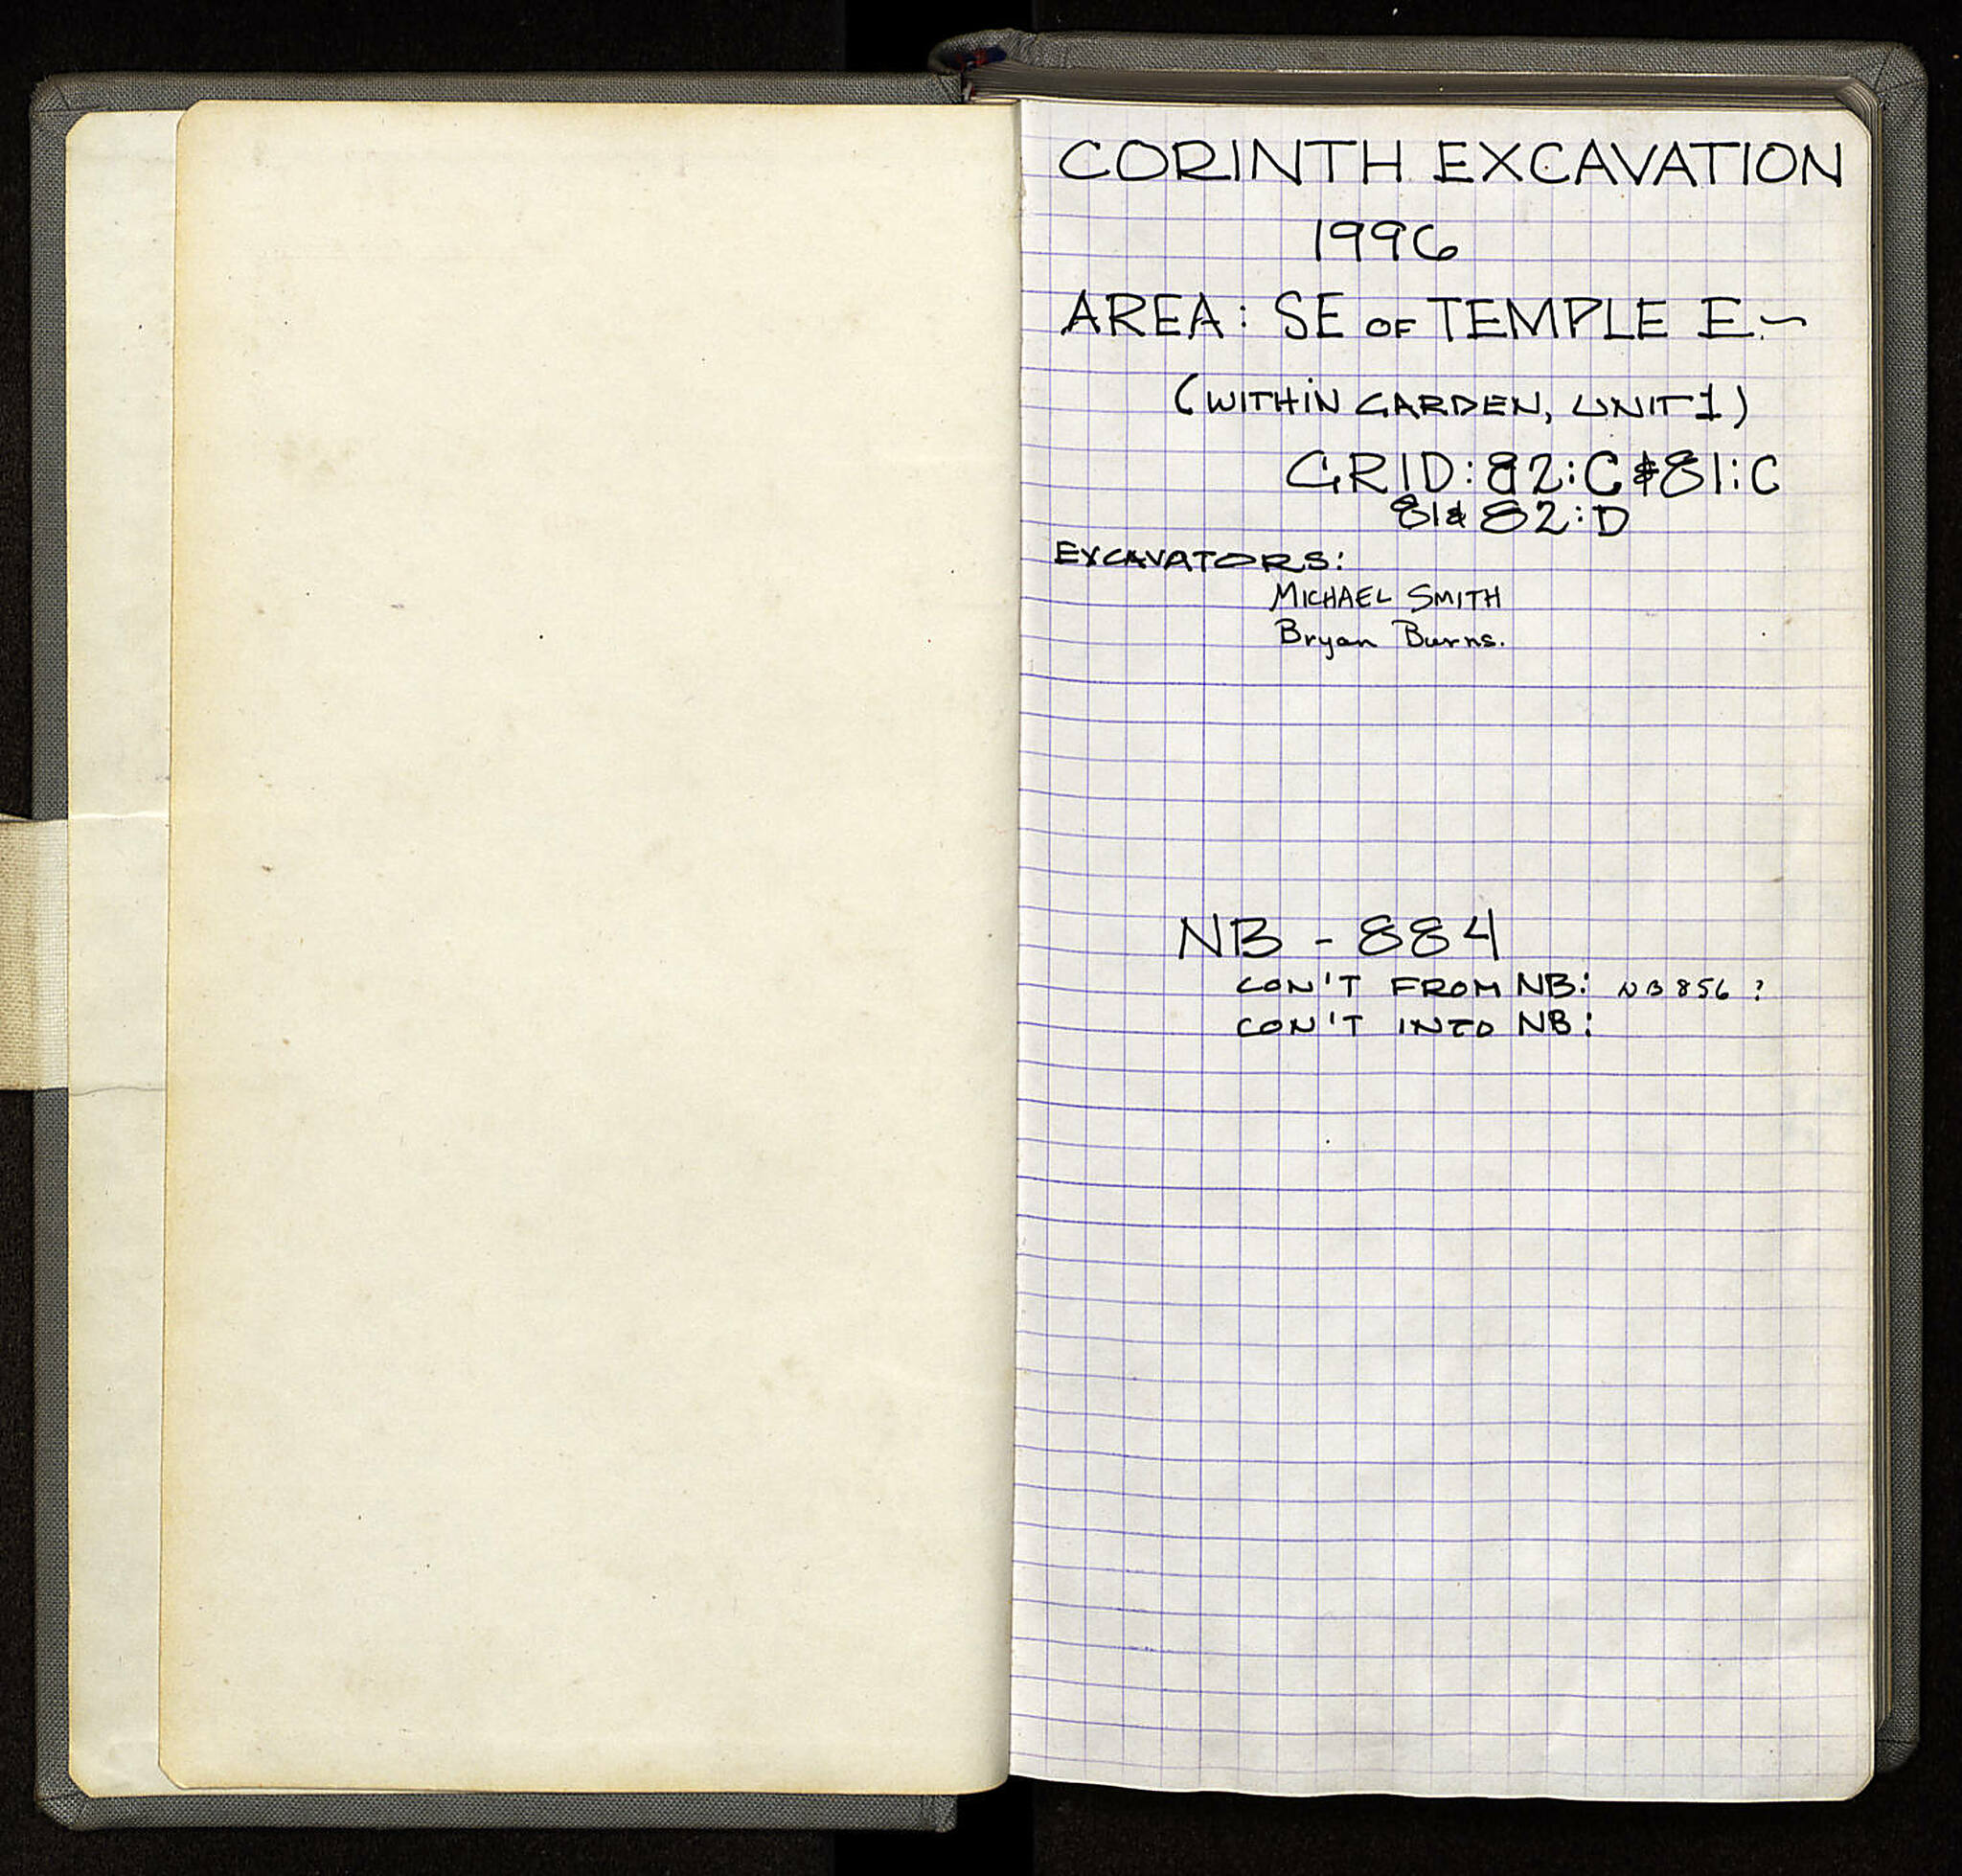 CORINTH EXCAVATION
1996
AREA: SE OF TEMPLE E.~
(WITHIN GARDEN, UNIT 1)
GRID: 82:C & 81:C
81 & 82:D
EXCAVATORS:
MICHAEL SMITH
Bryan Burns.
NB - 884
CON'T FROM NB: NB 856 ?
CON'T INTO NB: